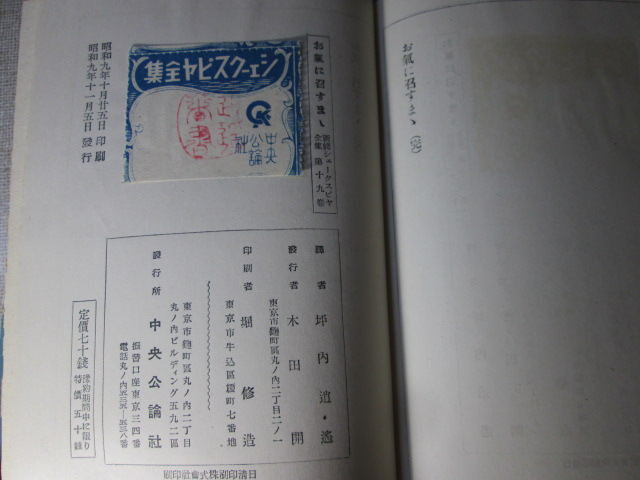 お氣に召すまゝ（完）
お氣に召すまゝ
新修シェークスピヤ全集 第十九卷
シェークスピヤ全集
中央公論社
昭和九年十月廿五日印刷
昭和九年十一月五日發行
譯者 坪內逍遙
發行者 木田開
東京市麴町區丸ノ內二丁目二ノ一
印刷者 堀修造
東京市牛込區榎町七番地
發行所 中央公論社
東京市麴町區丸ノ內二丁目
丸ノ內ビルディング五九二區
振替口座東京三四番
電話丸ノ內五三五一—五三八番
定價七十錢
豫約期間中に限り
特價五十錢
日清印刷株式會社印刷